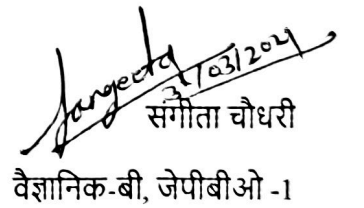 Sangeeta
31/03/2021
संगीता चौधरी
वैज्ञानिक-बी, जेपीबीओ -1